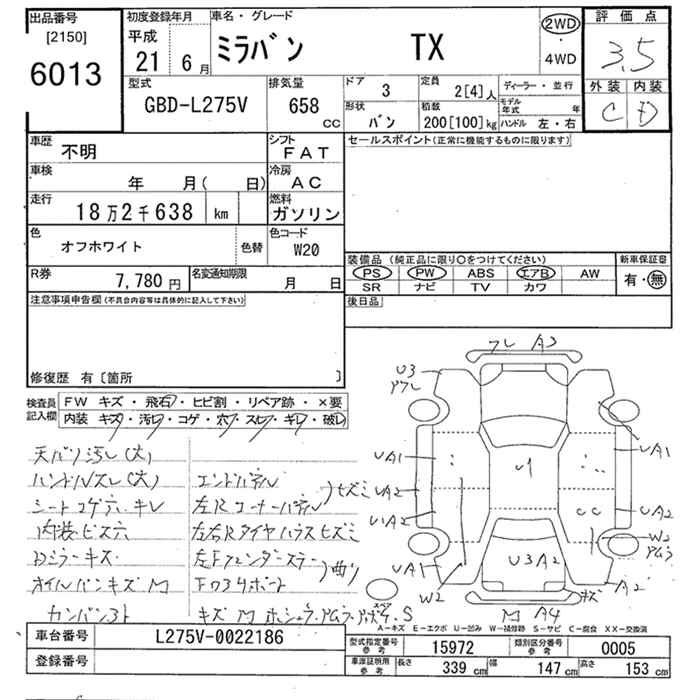 出品番号 [2150] 6013
初度登録年月 平成 21 6 月
車名・グレード ミラバン TX
2WD ・ 4WD
評価点 3.5
外装 内装
C D
型式 GBD-L275V
排気量 658 cc
ドア 3
定員 2[4]人
ディーラー・並行
形状 バン
積数 200[100]kg
モデル年式 年
ハンドル 左・右
車歴 不明
シフト FAT
セールスポイント(正常に機能するものに限ります)
車検 年 月( 日)
冷房 AC
走行 18万2千638 km
燃料 ガソリン
色 オフホワイト 色替
色コード W20
装備品 (純正品に限り○をつけてください) 新車保証書
PS PW ABS エアB AW 有・無
SR ナビ TV カワ
R券 7,780 円
名変通知期限 月 日
後日品
注意事項申告欄(不具合内容等は具体的に記入して下さい)
修復歴 有〔箇所 〕
検査員記入欄
FW キズ・飛石・ヒビ割・リペア跡・×要
内装 キズ・汚レ・コゲ・穴・スレ・キレ・破レ
天バリ汚レ(大)
ハンドルスレ(大) エンドパネル
シートコゲ穴キレ 左Rコーナーパネル
ヒズミ
内装ビス穴 左右Rタイヤハウスヒズミ
Dミラーキズ 左Fフェンダーステー
曲り
オイルパンキズM
カンバン3ト
フレ A3
U3
UA1 U1 UA1
UA2 UA2
U1A2
W2
UA1 U3A2 A2
W2 キズ
M A4
A-キズ E-エクボ U-凹み W-補修跡 S-サビ C-腐食 XX-交換済
車台番号 L275V-0022186
登録番号
型式指定番号 参考 15972
類別区分番号 参考 0005
車庫証明用 参考 長さ 339 cm 幅 147 cm 高さ 153 cm